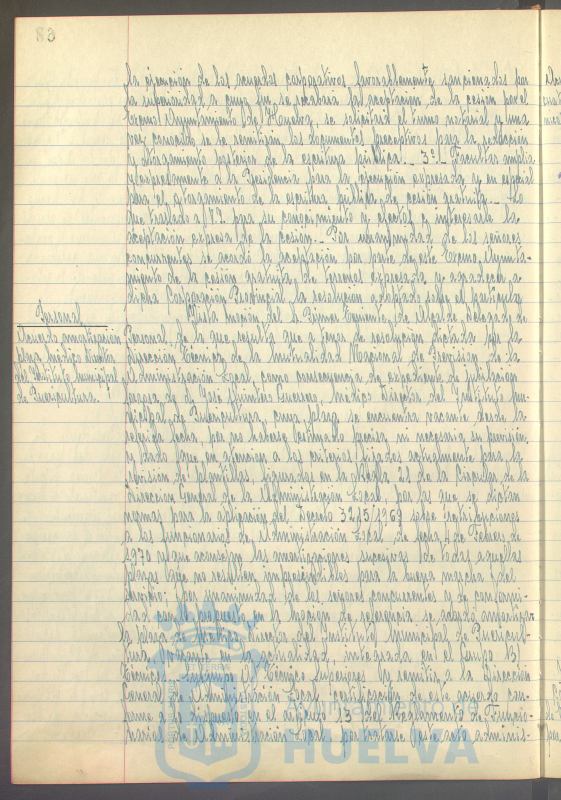 86
la ejecución de los acuerdos corporativos favorablemente sancionados por
la superioridad a cuyo fin se recabará la aceptación de la cesión por el
Excmo Ayuntamiento de Huelva, se solicitará el turno notarial y una
vez conocido se le remitirán los documentos preceptivos para la redacción
y otorgamiento posterior de la escritura pública.- 3º.- Facultar amplia
y expresamente a la Presidencia para la ejecución expresada y en especial
para el otorgamiento de la escritura pública de cesión gratuita.- Lo
que traslado a V.I. para su conocimiento y efectos e interesarle la
aceptación expresa de la cesión.- Por unanimidad de los señores
concurrentes se acordó la aceptación por parte de este Excmo. Ayunta-
miento de la cesión gratuita de terrenos expresada y agradecer a
dicha Corporación Provincial la resolución adoptada sobre el particular.
Personal
Acuerdo amortización
plaza médico director
del Instituto Municipal
de Puericultura.
Vista moción del 1º Primer Teniente de Alcalde, delegado de
Personal, de la que resulta que a tenor de resolución dictada por la
Dirección Técnica de la Mutualidad Nacional de Previsión de la
Administración Local, como consecuencia de expediente de jubilación
forzosa de D. José Quintero Guerrero, Médico Director del Instituto Mu-
nicipal de Puericultura, cuya plaza se encuentra vacante desde la
referida fecha, por no haberse estimado precisa ni necesaria su provisión,
y dado que en atención a los criterios fijados actualmente para la
revisión de plantillas, figurados en la Regla 21 de la Circular de la
Dirección General de la Administración Local, por las que se dictan
normas para la aplicación del Decreto 3215/1969 sobre retribuciones
a los funcionarios de Administración Local de fecha 4 de Febrero de
1970 y que aconsejan las amortizaciones sucesivas de todas aquellas
plazas que no resulten imprescindibles para la buena marcha del
servicio; por unanimidad de los señores concurrentes y de conformi-
dad con lo expuesto en la moción de referencia se acordó amortizar
la plaza de Médico Director del Instituto Municipal de Puericul-
tura, vacante en la actualidad, integrada en el Grupo B)
Técnicos - Técnicos Superiores y remitir a la Dirección
General de Administración Local certificación de este acuerdo con-
forme a lo dispuesto en el artículo 13 del Reglamento de Funcio-
narios de Administración Local, por tratarse que este adminis-
Ayuntamiento de
HUELVA